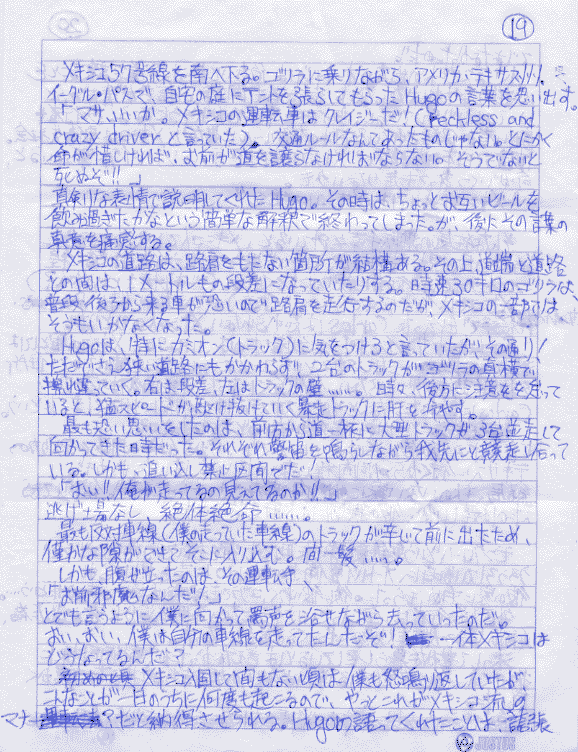 19
メキシコ57号線を南へ下る。ゴリラに乗りながら、アメリカ・テキサス州、
イーグル・パスで、自宅の庭にテントを張らしてもらったHugoの言葉を思い出す。
「マサ、いいか。メキシコの運転車はクレイジーだ！（reckless and
crazy driver と言っていた）。交通ルールなんてあったものじゃない。とにかく
命が惜しければ、お前が道を譲らなければならない。そうでないと
死ぬぞ!!」
真剣な表情で説明してくれたHugo。その時は、ちょっとお互いビールを
飲み過ぎたかなという簡単な解釈で終わってしまった。が、後にその言葉の
真意を痛感する。
メキシコの道路は、路肩をもたない箇所が結構ある。その上、道端と道路
との間は、1メートルもの段差になっていたりする。時速30キロのゴリラは、
普段、後ろから来る車が恐いので路肩を走行するのだが、メキシコの
そうもいかなくなった。
Hugoは、特にカミオン（トラック）に気をつけろと言っていたが、その通り！
ただでさえ狭い道路にもかかわらず、2台のトラックがゴリラの真横で
擦れ違っていく。右は段差、左はトラックの壁……。時々、後方に注意を
いると、猛スピードが駆け抜けていく暴走トラックに肝を冷やす。
最も恐い思いをしたのは、前方から道一杯に大型トラックが3台並走して
向かってきた時だった。それぞれ警笛を鳴らしながら我先にと競走し合って
いる。しかも、追い越し禁止区間でだ！
「おい!!俺が走ってるの見えてるのか!!」
逃げ場なし、絶体絶命……。
最も反対車線（僕の走っていた車線）のトラックが辛じて前に出たため、
僅かな隙ができてそこに入り込む。間一髪……。
しかも、腹が立ったのは、その運転手、
「お前邪魔なんだ！」
とでも言うように僕に向かって罵声を浴せながら去っていったのだ。
おい、おい、僕は自分の車線を走ってたんだぞ！一体メキシコは
どうなってるんだ？
メキシコ入国して間もない頃は、僕も怒鳴り返していたが、
こんなことが一日のうちに何度も起こるので、やっとこれがメキシコ流の
マナー？だと納得させられる。Hugoの語ってくれたことは、誇張